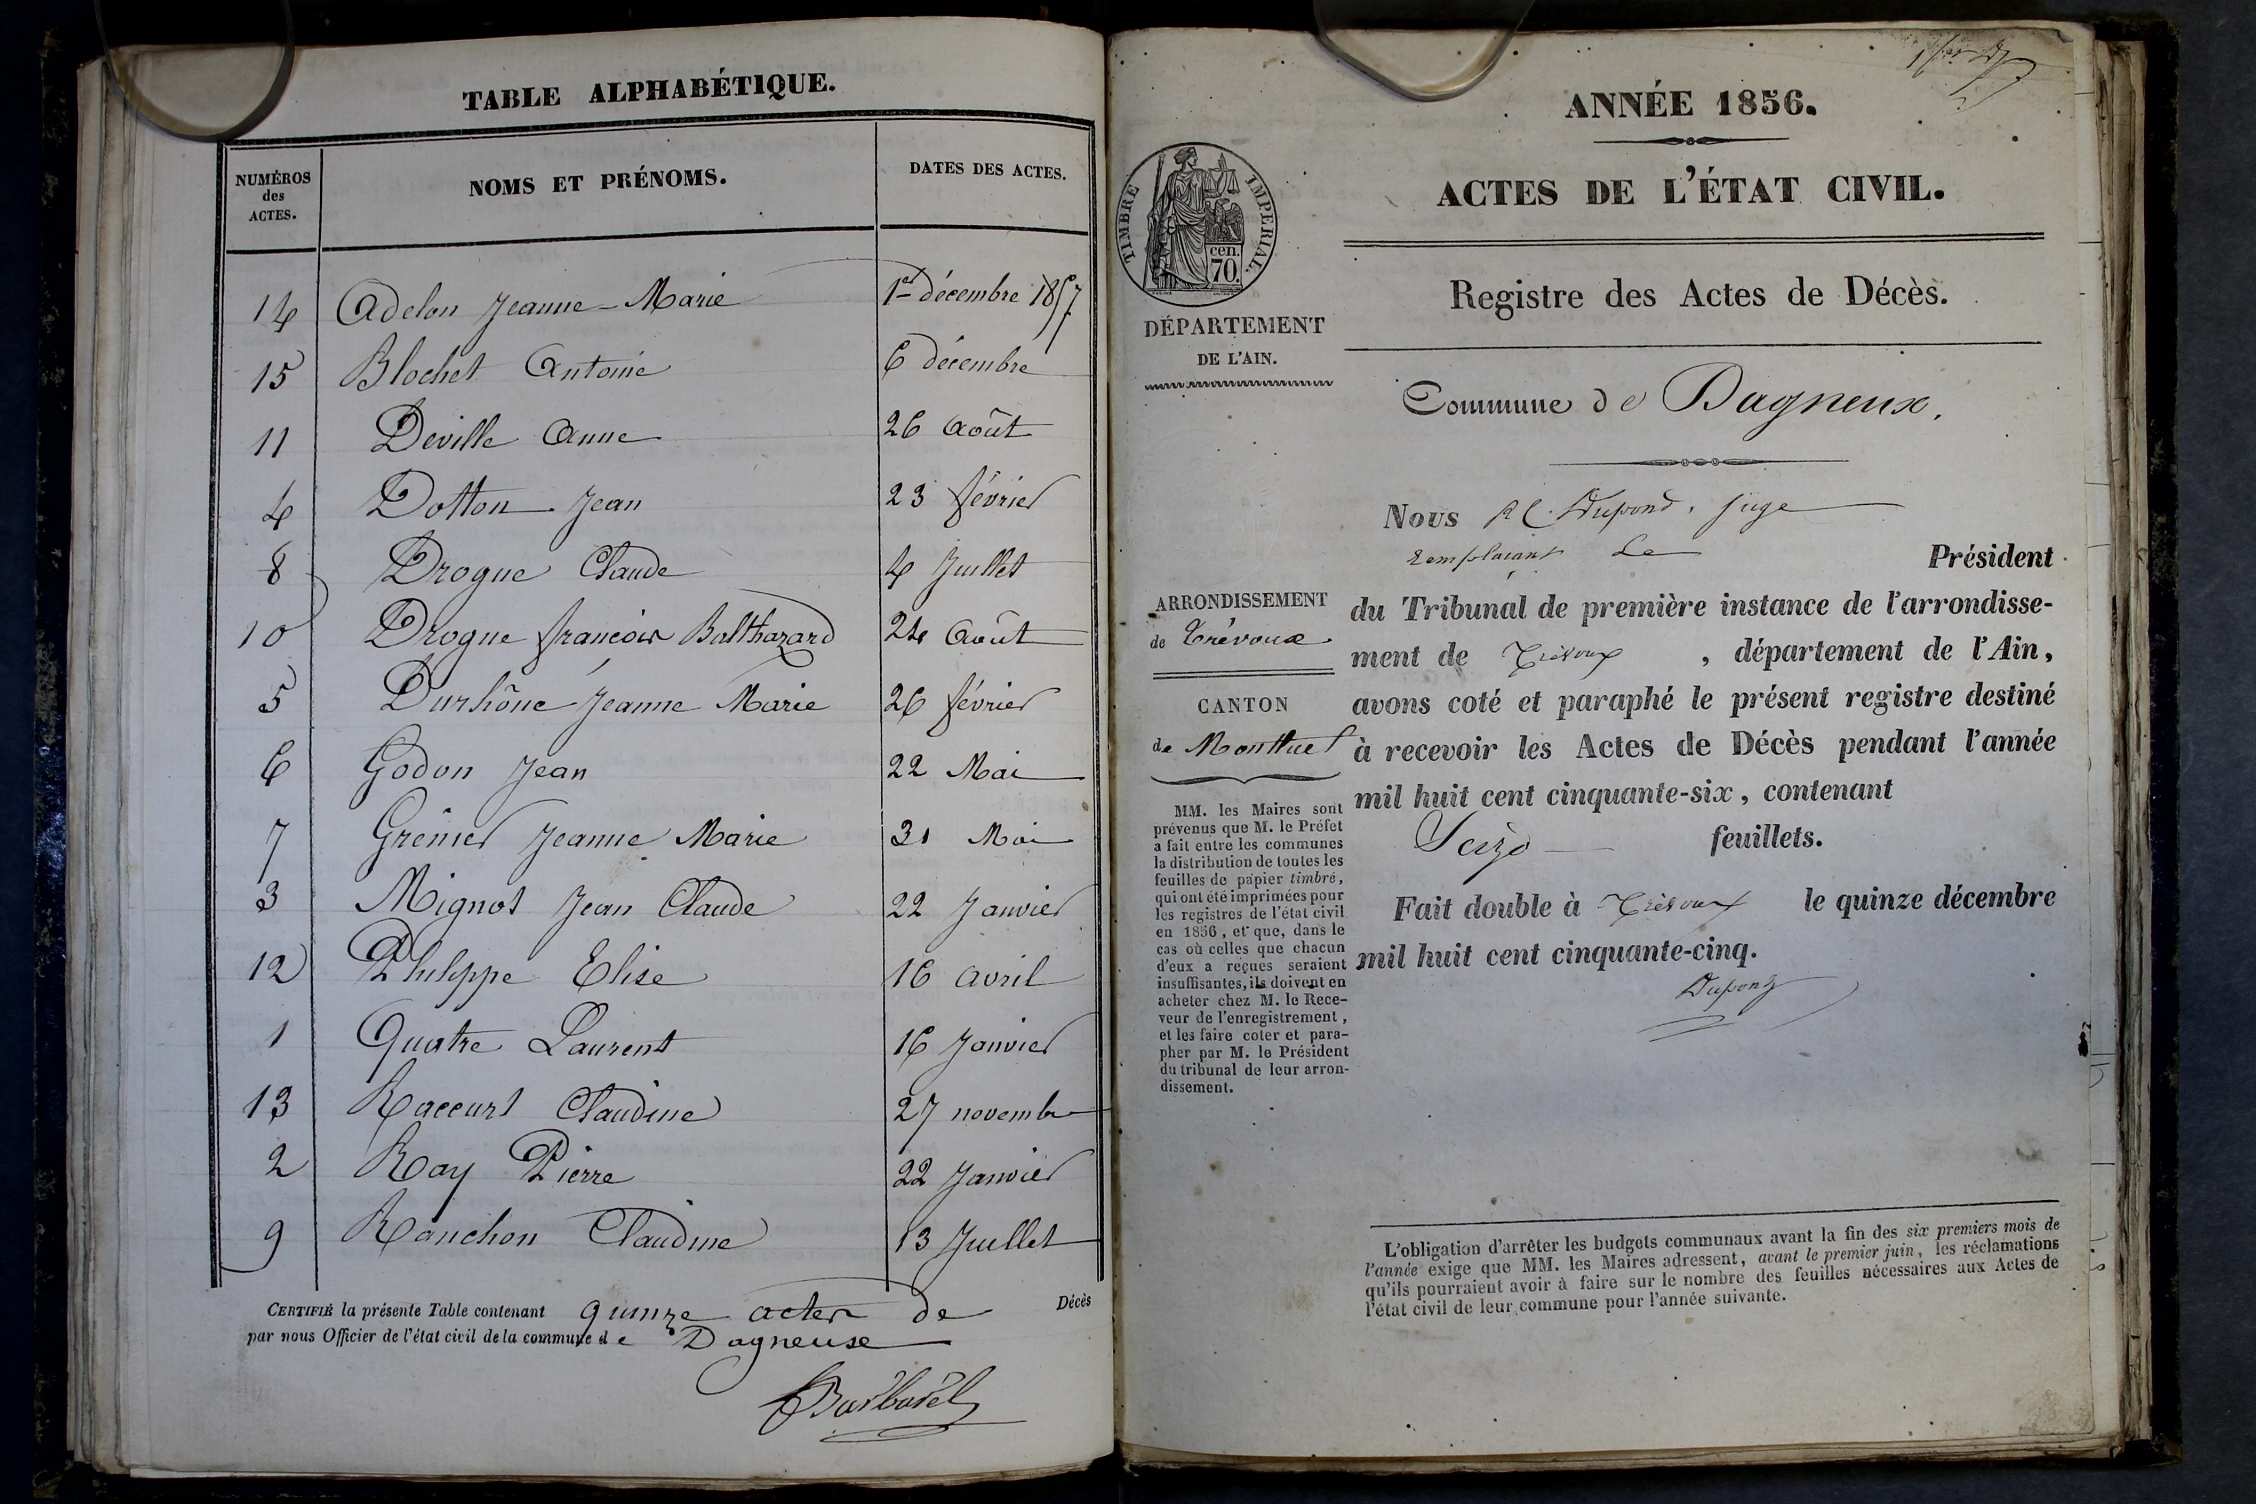 TABLE ALPHABÉTIQUE.
NUMÉROS des ACTES. NOMS ET PRÉNOMS. DATES DES ACTES.
14 Adelon Jeanne-Marie 1er décembre 1857
15 Blochet Antoine 6 décembre
11 Deville Anne 26 Août
4 Dotton Jean 23 février
8 Drogue Claude 4 Juillet
10 Drogue françois Balthazard 24 Août
5 Durhône Jeanne Marie 26 février
6 Godon Jean 22 Mai
7 Grênier Jeanne Marie 31 Mai
3 Mignot Jean Claude 22 Janvier
12 Philippe Elise 16 avril
1 Quatre Laurent 16 Janvier
13 Raccurt Claudine 27 novembre
2 Ray Pierre 22 Janvier
9 Ranchon Claudine 13 Juillet
CERTIFIÉ la présente Table contenant quinze actes de Décès
par nous Officier de l'état civil de la commune de Dagneux
Barbarel
ANNÉE 1856.
ACTES DE L'ÉTAT CIVIL.
Registre des Actes de Décès.
TIMBRE IMPERIAL.
cen.
70
DÉPARTEMENT
DE L'AIN.
Commune de Dagneux.
Nous Dupond, juge
remplaçant Le Président
du Tribunal de première instance de l'arrondisse-
ment de Trévoux, département de l'Ain,
avons coté et paraphé le présent registre destiné
à recevoir les Actes de Décès pendant l'année
mil huit cent cinquante-six, contenant
Seize feuillets.
Fait double à Trévoux le quinze décembre
mil huit cent cinquante-cinq.
Dupond
ARRONDISSEMENT
de Trévoux
CANTON
de Montluel
MM. les Maires sont
prévenus que M. le Préfet
a fait entre les communes
la distribution de toutes les
feuilles de papier timbré,
qui ont été imprimées pour
les registres de l'état civil
en 1856, et que, dans le
cas où celles que chacun
d'eux a reçues seraient
insuffisantes, ils doivent en
acheter chez M. le Rece-
veur de l'enregistrement,
et les faire coter et para-
pher par M. le Président
du tribunal de leur arron-
dissement.
L'obligation d'arrêter les budgets communaux avant la fin des six premiers mois de
l'année exige que MM. les Maires adressent, avant le premier juin, les réclamations
qu'ils pourraient avoir à faire sur le nombre des feuilles nécessaires aux Actes de
l'état civil de leur commune pour l'année suivante.